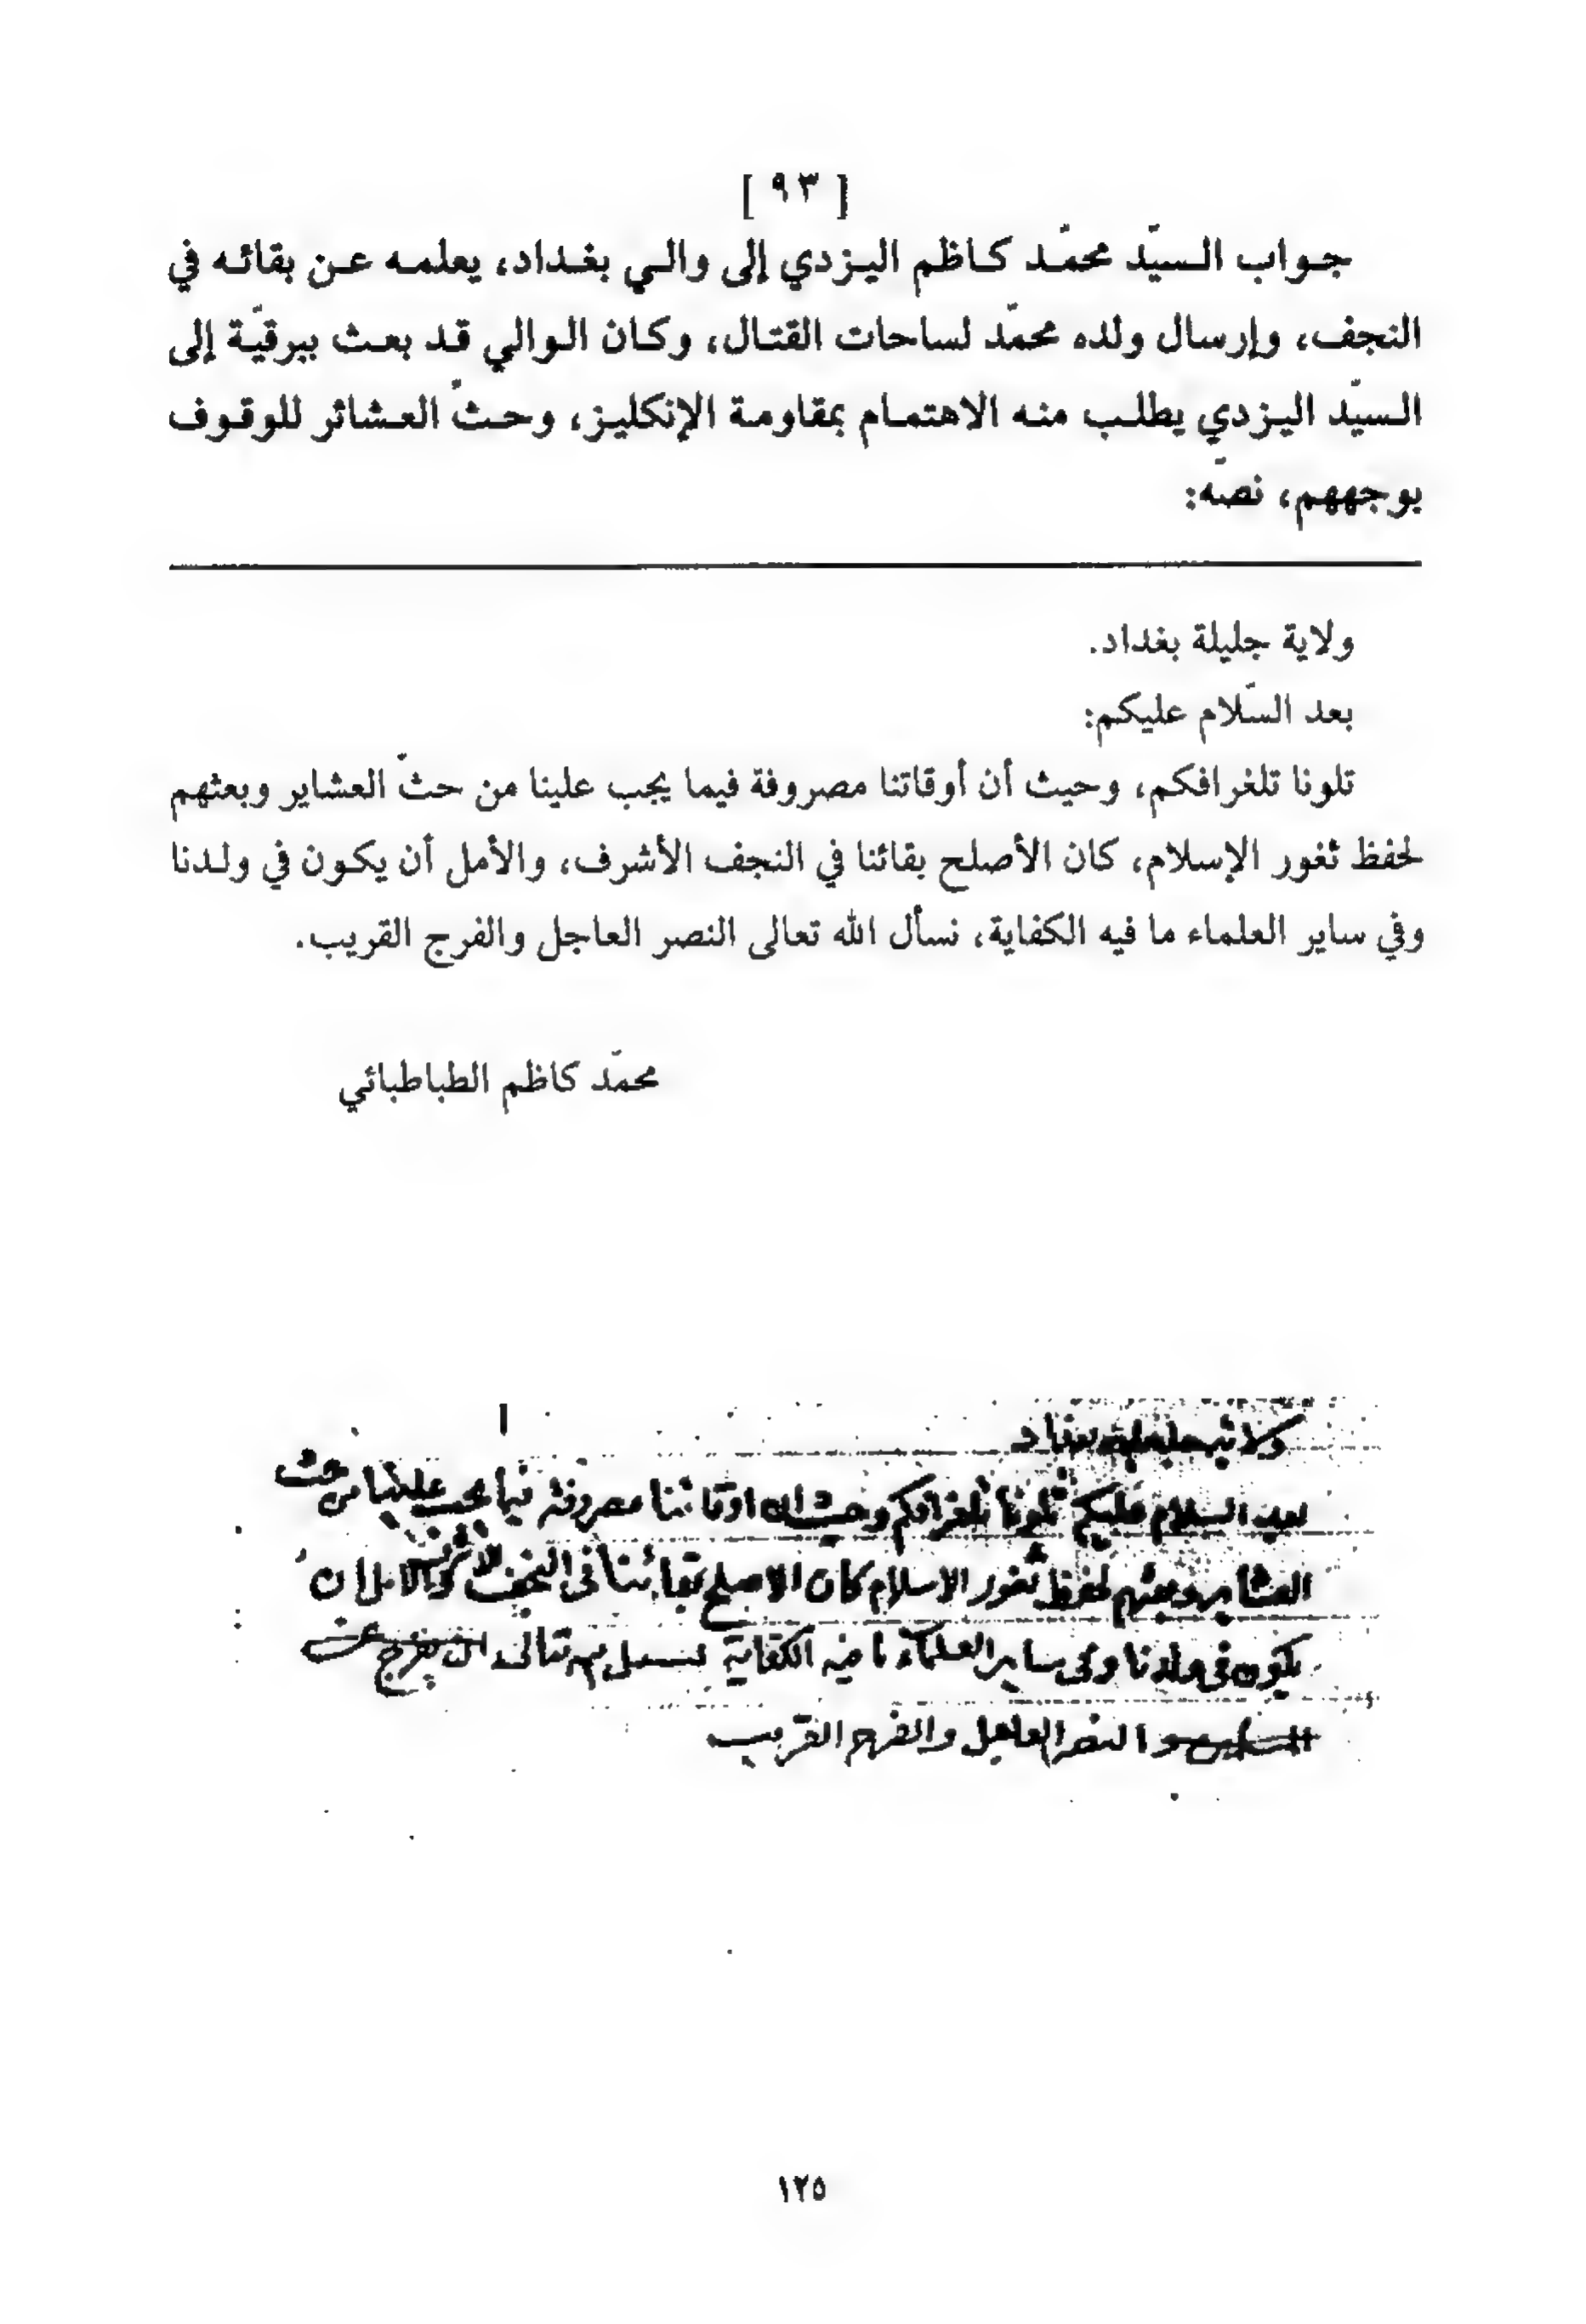 [ ٩٣ ]
جواب السيّد محمّد كاظم اليزدي إلى والي بغداد، يعلمه عن بقائه في
النجف، وإرسال ولده محمّد لساحات القتال، وكان الوالي قد بعث ببرقيّة إلى
السيّد اليزدي يطلب منه الاهتمام بمقاومة الإنكليز، وحثّ العشائر للوقوف
بوجههم، نصّه:
ولاية جليلة بغداد.
بعد السّلام عليكم:
تلونا تلغرافكم، وحيث أن أوقاتنا مصروفة فيما يجب علينا من حثّ العشاير وبعثهم
لحفظ ثغور الإسلام، كان الأصلح بقائنا في النجف الأشرف، والأمل أن يكون في ولدنا
وفي ساير العلماء ما فيه الكفاية، نسأل الله تعالى النصر العاجل والفرج القريب.
محمّد كاظم الطباطبائي
ولاية جليلة بغداد
بعد السلام عليكم تلونا تلغرافكم وحيث ان اوقاتنا مصروفة فيما يجب علينا من حث
العشاير وبعثهم لحفظ ثغور الاسلام كان الاصلح بقائنا في النجف الاشرف والامل ان
يكون في ولدنا وفي ساير العلماء ما فيه الكفاية نسئل تعالى ان يفرج عن
النصر العاجل والفرج القريب
١٢٥